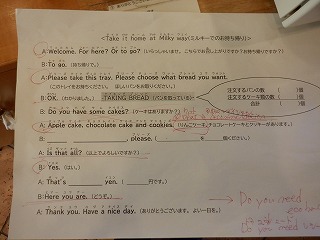 <Take it home at Milky way(ミルキーでのお持ち帰り)>
A:Welcome. For here? Or to go? (いらっしゃいませ。こちらでお召し上がりですか？お持ち帰りですか？)
B:To go. (持ち帰りで。)
A:Please take this tray. Please choose what bread you want.
(このトレイをお持ちください。ほしいパンをお取りください。)
B:OK. (わかりました。) TAKING BREAD (パンを取っている)
注文するパンの数 ( )個
注文するケーキ類の数 ( )個
合計 ( )個
B: Do you have some cakes? (ケーキはありますか？)
A: Apple cake, chocolate cake and cookies. (りんごケーキ、チョコレートケーキとクッキーがあります。)
B: , please. ( を 個ください。)
A: Is that all? (以上でよろしいですか？)
B: Yes. (はい。)
A: That's yen. ( 円です。)
B: Here you are. (どうぞ。)
A: Thank you. Have a nice day. (ありがとうございます。よい一日を。)
→ Do you need
Do you need